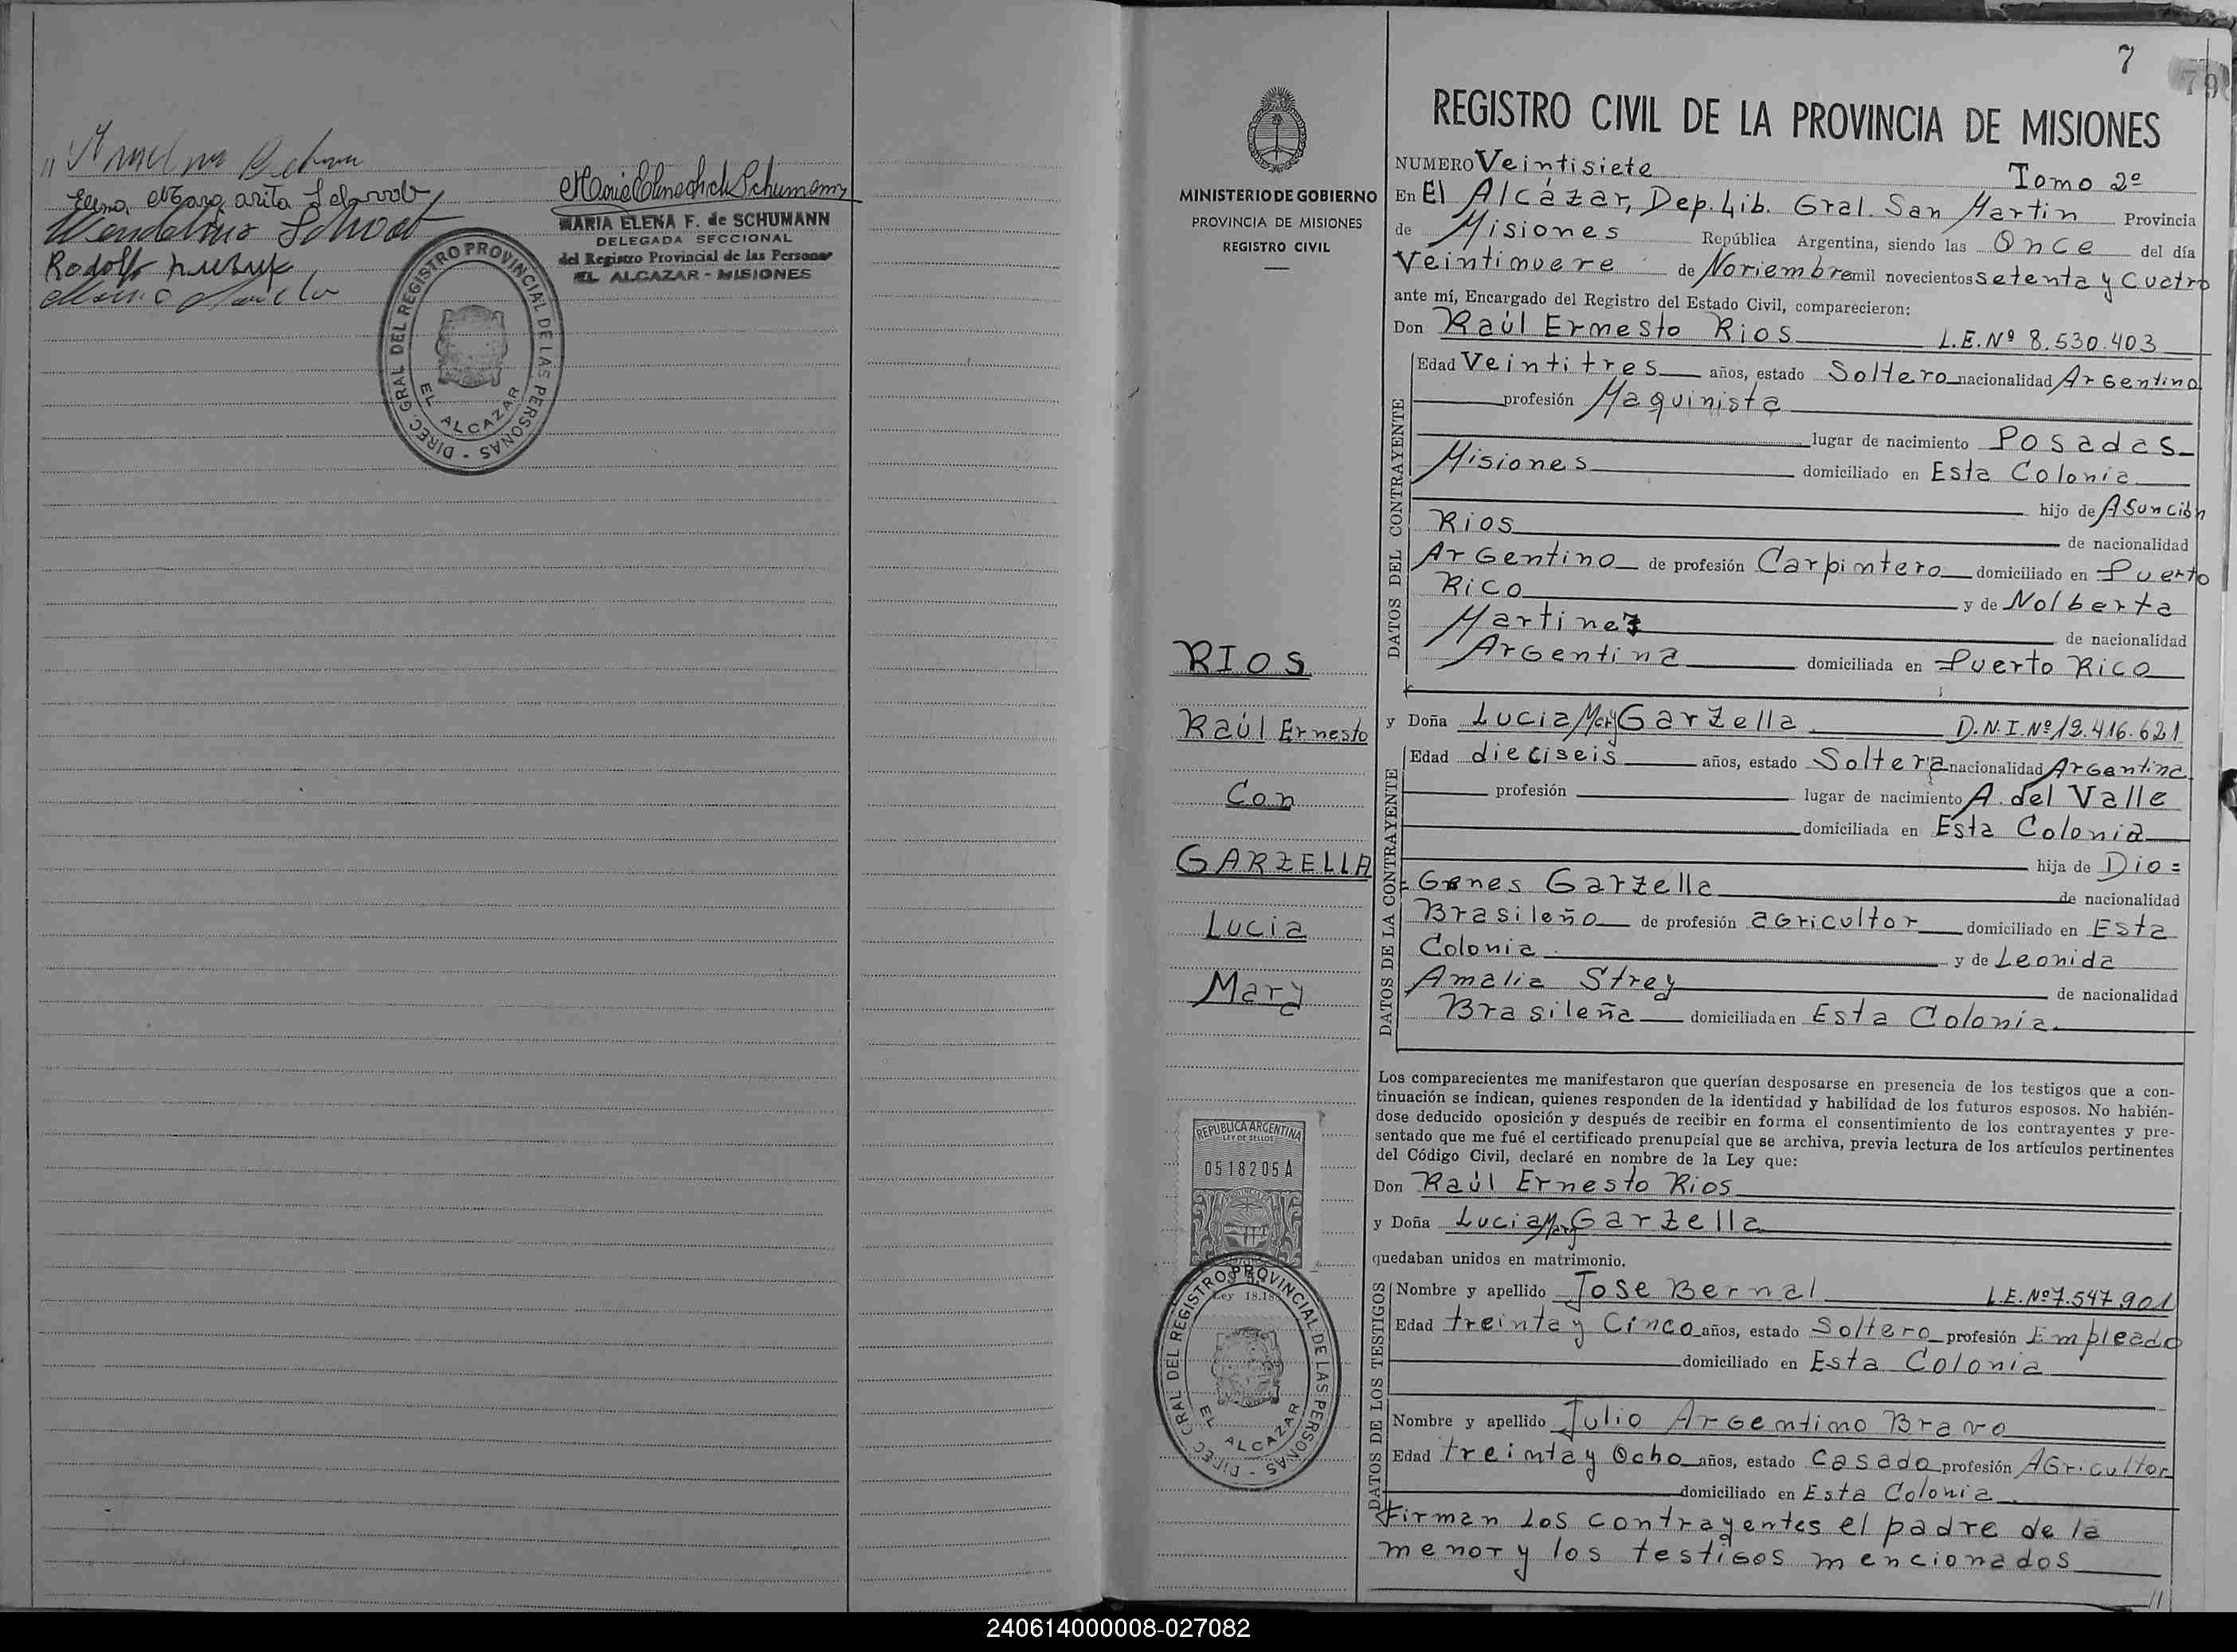 Elena Margarita
Rodolfo
Maria Elena F. de Schumann
MARIA ELENA F. de SCHUMANN
DELEGADA SECCIONAL
del Registro Provincial de las Personas
EL ALCAZAR - MISIONES
DIREC GRAL DEL REGISTRO PROVINCIAL DE LAS PERSONAS -
EL ALCAZAR
7
79
MINISTERIO DE GOBIERNO
PROVINCIA DE MISIONES
REGISTRO CIVIL
RIOS
Raúl Ernesto
Con
GARZELLA
Lucia
Mary
REPUBLICA ARGENTINA
LEY DE SELLOS
0518205A
Ley 18.18
DIREC GRAL DEL REGISTRO PROVINCIAL DE LAS PERSONAS -
EL ALCAZAR
REGISTRO CIVIL DE LA PROVINCIA DE MISIONES
NUMERO Veintisiete Tomo 2º
En El Alcázar, Dep. Lib. Gral. San Martin Provincia
de Misiones República Argentina, siendo las Once del día
Veintinueve de Noviembre mil novecientos setenta y Cuatro
ante mí, Encargado del Registro del Estado Civil, comparecieron:
Don Raúl Ernesto Rios L.E.Nº 8.530.403
DATOS DEL CONTRAYENTE
Edad Veintitres años, estado Soltero nacionalidad Argentino
profesión Maquinista
lugar de nacimiento Posadas
Misiones domiciliado en Esta Colonia
hijo de Asunción
Rios de nacionalidad
Argentino de profesión Carpintero domiciliado en Puerto
Rico y de Nolberta
Martinez de nacionalidad
Argentina domiciliada en Puerto Rico
y Doña Lucia Mary Garzella D.N.I.Nº 12.416.621
DATOS DE LA CONTRAYENTE
Edad dieciseis años, estado Soltera nacionalidad Argentina
profesión lugar de nacimiento A. del Valle
domiciliada en Esta Colonia
hija de Dio=
=Genes Garzella de nacionalidad
Brasileño de profesión agricultor domiciliado en Esta
Colonia y de Leonida
Amalia Strey de nacionalidad
Brasileña domiciliada en Esta Colonia.
Los comparecientes me manifestaron que querían desposarse en presencia de los testigos que a con-
tinuación se indican, quienes responden de la identidad y habilidad de los futuros esposos. No habién-
dose deducido oposición y después de recibir en forma el consentimiento de los contrayentes y pre-
sentado que me fué el certificado prenupcial que se archiva, previa lectura de los artículos pertinentes
del Código Civil, declaré en nombre de la Ley que:
Don Raúl Ernesto Rios
y Doña Lucia Mary Garzella
quedaban unidos en matrimonio.
DATOS DE LOS TESTIGOS
Nombre y apellido Jose Bernal L.E.Nº 7.547.901
Edad treinta y Cinco años, estado Soltero profesión Empleado
domiciliado en Esta Colonia
Nombre y apellido Julio Argentino Bravo
Edad treinta y Ocho años, estado Casado profesión Agricultor
domiciliado en Esta Colonia
Firman los contrayentes el padre de la
menor y los testigos mencionados
//
240614000008-027082